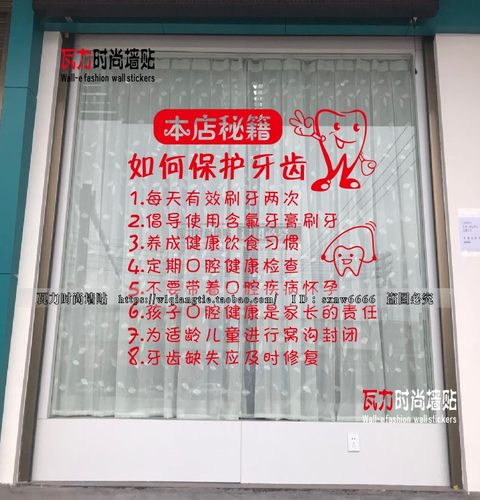 瓦力时尚墙贴
Wall-e fashion wall stickers
本店秘籍
如何保护牙齿
1.每天有效刷牙两次
2.倡导使用含氟牙膏刷牙
3.养成健康饮食习惯
4.定期口腔健康检查
5.不要带着口腔疾病怀孕
瓦力时尚墙贴 https://wlqiangtie.taobao.com/ ID：sxnw6666 盗图必究
6.孩子口腔健康是家长的责任
7.为适龄儿童进行窝沟封闭
8.牙齿缺失应及时修复
瓦力时尚墙贴
Wall-e fashion wall stickers